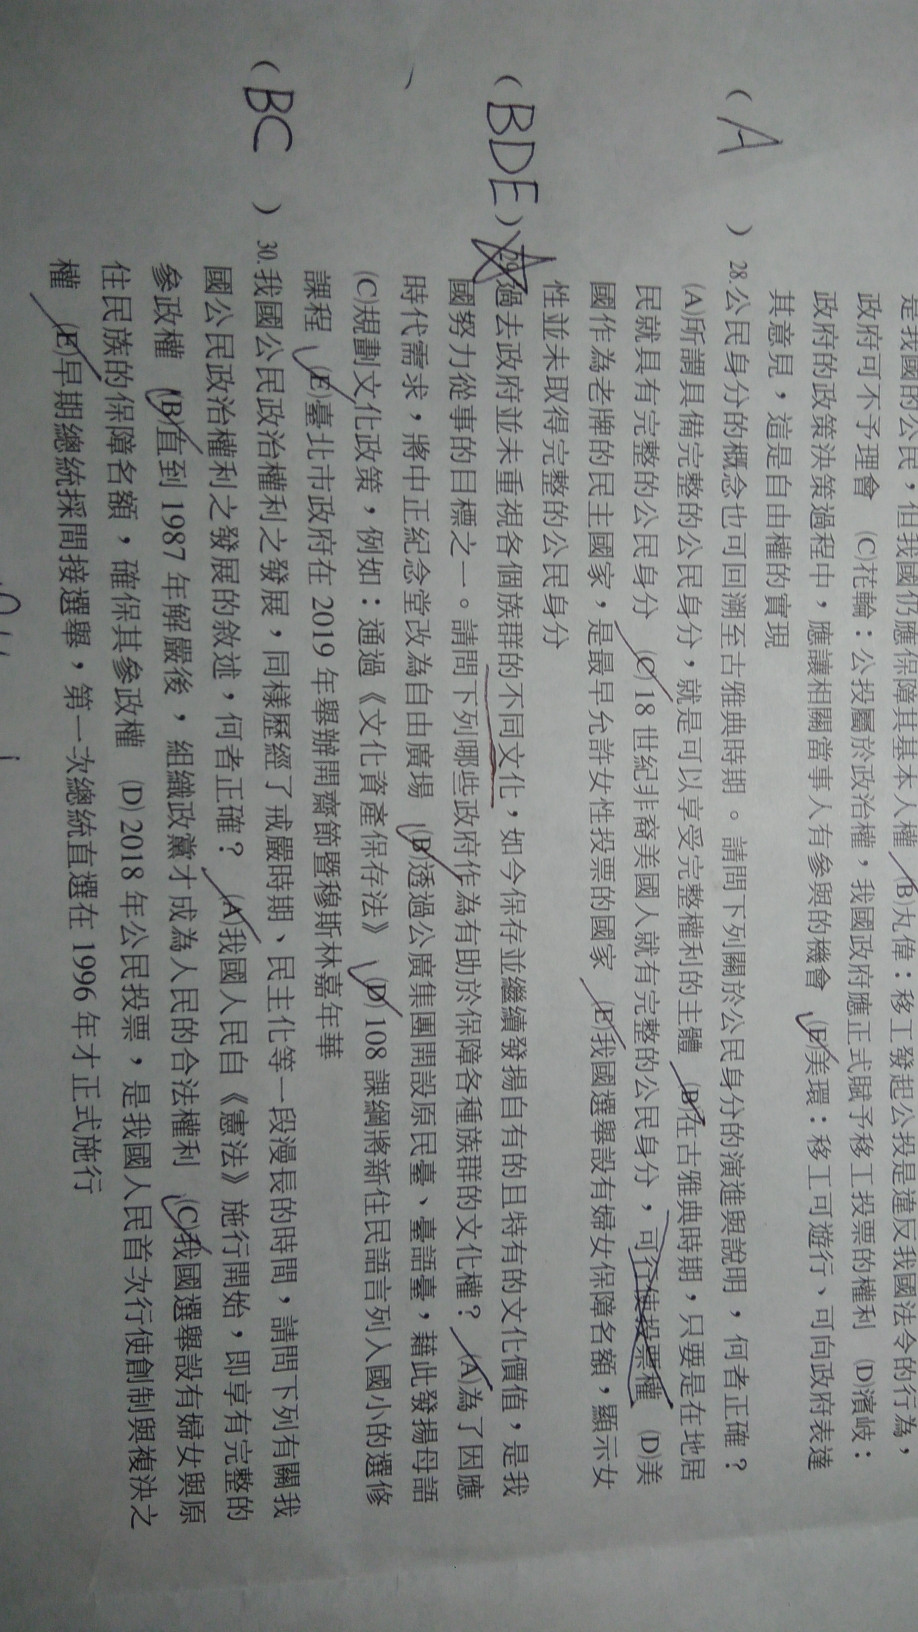 是我國的公民，但我國仍應保障其基本人權 (B)丸偉：移工發起公投是違反我國法令的行為，
政府可不予理會 (C)花輪：公投屬於政治權，我國政府應正式賦予移工投票的權利 (D)濱岐：
政府的政策決策過程中，應讓相關當事人有參與的機會 (E)美環：移工可遊行、可向政府表達
其意見，這是自由權的實現
( A ) 28.公民身分的概念也可回溯至古雅典時期。請問下列關於公民身分的演進與說明，何者正確？
(A)所謂具備完整的公民身分，就是可以享受完整權利的主體 (B)在古雅典時期，只要是在地居
民就具有完整的公民身分 (C)18 世紀非裔美國人就有完整的公民身分，可行使投票權 (D)美
國作為老牌的民主國家，是最早允許女性投票的國家 (E)我國選舉設有婦女保障名額，顯示女
性並未取得完整的公民身分
( BDE ) 29.過去政府並未重視各個族群的不同文化，如今保存並繼續發揚自有的且特有的文化價值，是我
國努力從事的目標之一。請問下列哪些政府作為有助於保障各種族群的文化權？ (A)為了因應
時代需求，將中正紀念堂改為自由廣場 (B)透過公廣集團開設原民臺、臺語臺，藉此發揚母語
(C)規劃文化政策，例如：通過《文化資產保存法》 (D)108 課綱將新住民語言列入國小的選修
課程 (E)臺北市政府在 2019 年舉辦開齋節暨穆斯林嘉年華
( BC ) 30.我國公民政治權利之發展，同樣歷經了戒嚴時期、民主化等一段漫長的時間，請問下列有關我
國公民政治權利之發展的敘述，何者正確？ (A)我國人民自《憲法》施行開始，即享有完整的
參政權 (B)直到 1987 年解嚴後，組織政黨才成為人民的合法權利 (C)我國選舉設有婦女與原
住民族的保障名額，確保其參政權 (D)2018 年公民投票，是我國人民首次行使創制與複決之
權 (E)早期總統採間接選舉，第一次總統直選在 1996 年才正式施行